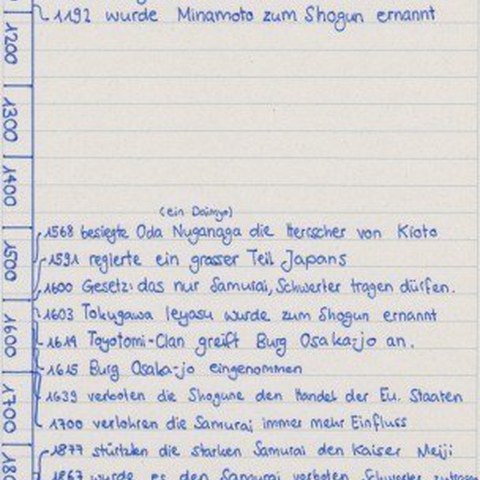 1192 wurde Minamoto zum Shogun ernannt
1200
1300
1400
(ein Daimyo)
1568 besiegte Oda Nuganaga die Herrscher von Kioto
1591 regierte ein grosser Teil Japans
1500
1600 Gesetz: das nur Samurai, Schwerter tragen dürfen.
1603 Tokugawa Ieyasu wurde zum Shogun ernannt
1600
1614 Toyotomi-Clan greift Burg Osaka-jo an.
1615 Burg Osaka-jo eingenommen
1639 verboten die Shogune den Handel der Eu. Staaten
1700
1700 verlohren die Samurai immer mehr Einfluss
1877 stürtzten die starken Samurai den Kaiser Meiji
1867 wurde es den Samurai verboten Schwerter